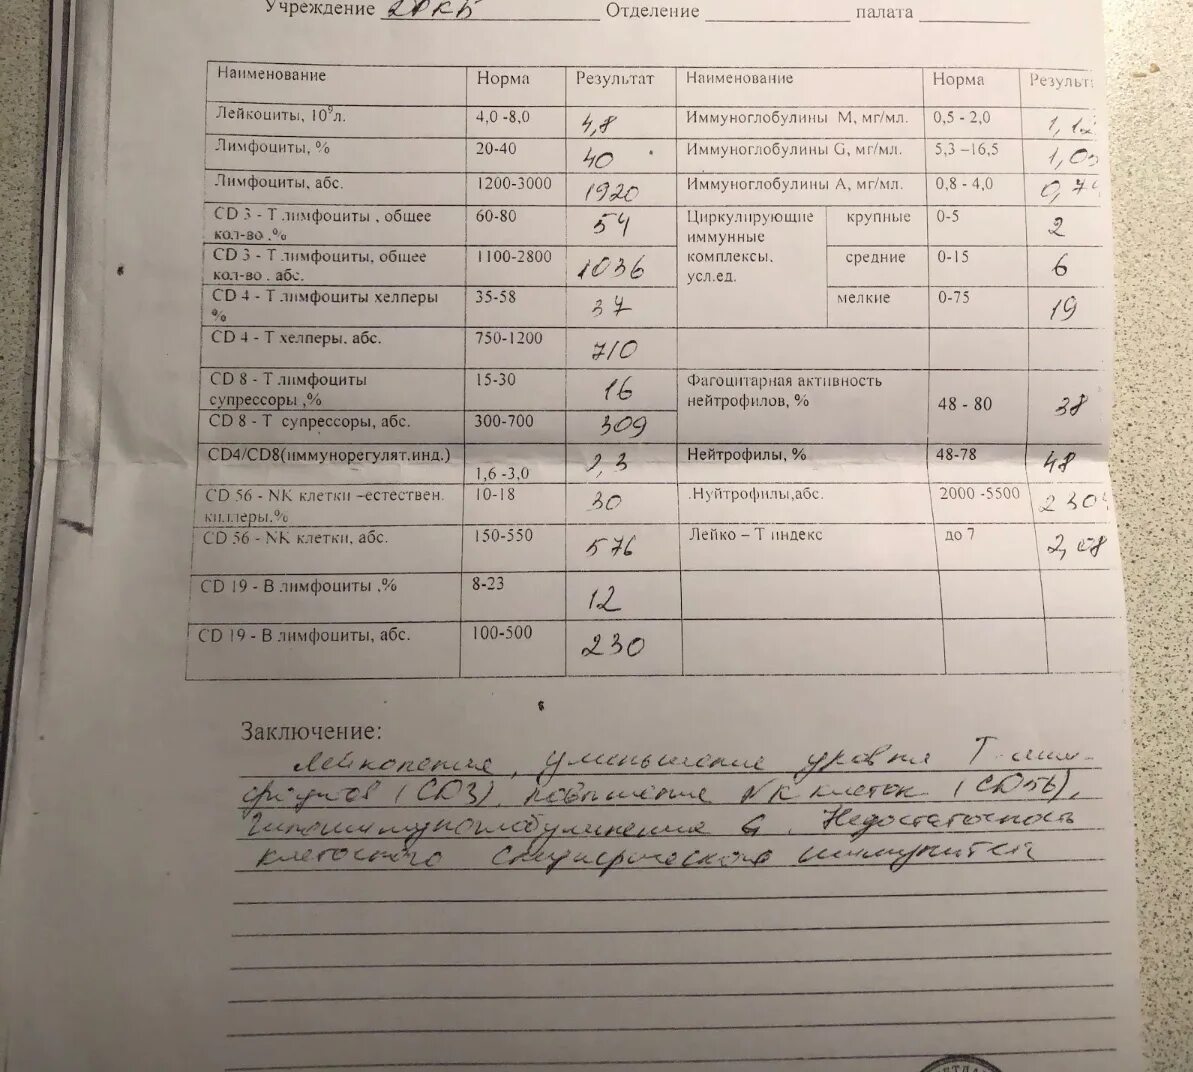 Учреждение 2РКБ Отделение палата
Наименование Норма Результат Наименование Норма Результ
Лейкоциты, 10⁹л. 4,0 -8,0 4,8 Иммуноглобулины М, мг/мл. 0,5 - 2,0 1,12
Лимфоциты, % 20-40 40 Иммуноглобулины G, мг/мл. 5,3 –16,5 1,05
Лимфоциты, абс. 1200-3000 1920 Иммуноглобулины А, мг/мл. 0,8 - 4,0 0,7
CD 3 - Т лимфоциты , общее 60-80 54 Циркулирующие крупные 0-5 2
кол-во ,% иммунные
CD 3 - Т лимфоциты, общее 1100-2800 1036 комплексы, средние 0-15 6
кол-во . абс. усл.ед.
CD 4 - Т лимфоциты хелперы 35-58 37 мелкие 0-75 19
%
CD 4 - Т хелперы, абс. 750-1200 710
CD 8 - Т лимфоциты 15-30 16 Фагоцитарная активность
супрессоры ,% нейтрофилов, % 48 - 80 38
CD 8 - Т супрессоры, абс. 300-700 309
CD4/CD8(иммунорегулят.инд.) 1,6 -3,0 2,3 Нейтрофилы, % 48-78 48
CD 56 - NK клетки –естествен. 10-18 30 .Нуйтрофилы,абс. 2000 -5500 230
киллеры,%
CD 56 - NK клетки, абс. 150-550 576 Лейко – Т индекс до 7 2,08
CD 19 - В лимфоциты ,% 8-23 12
CD 19 - В лимфоциты, абс. 100-500 230
Заключение:
Лейкопения, уменьшение уровня Т-лим-
фоцитов (CD3), повышение NK клеток (CD56),
Гипоиммуноглобулинемия G. Недостаточность
клеточного специфического иммунитета